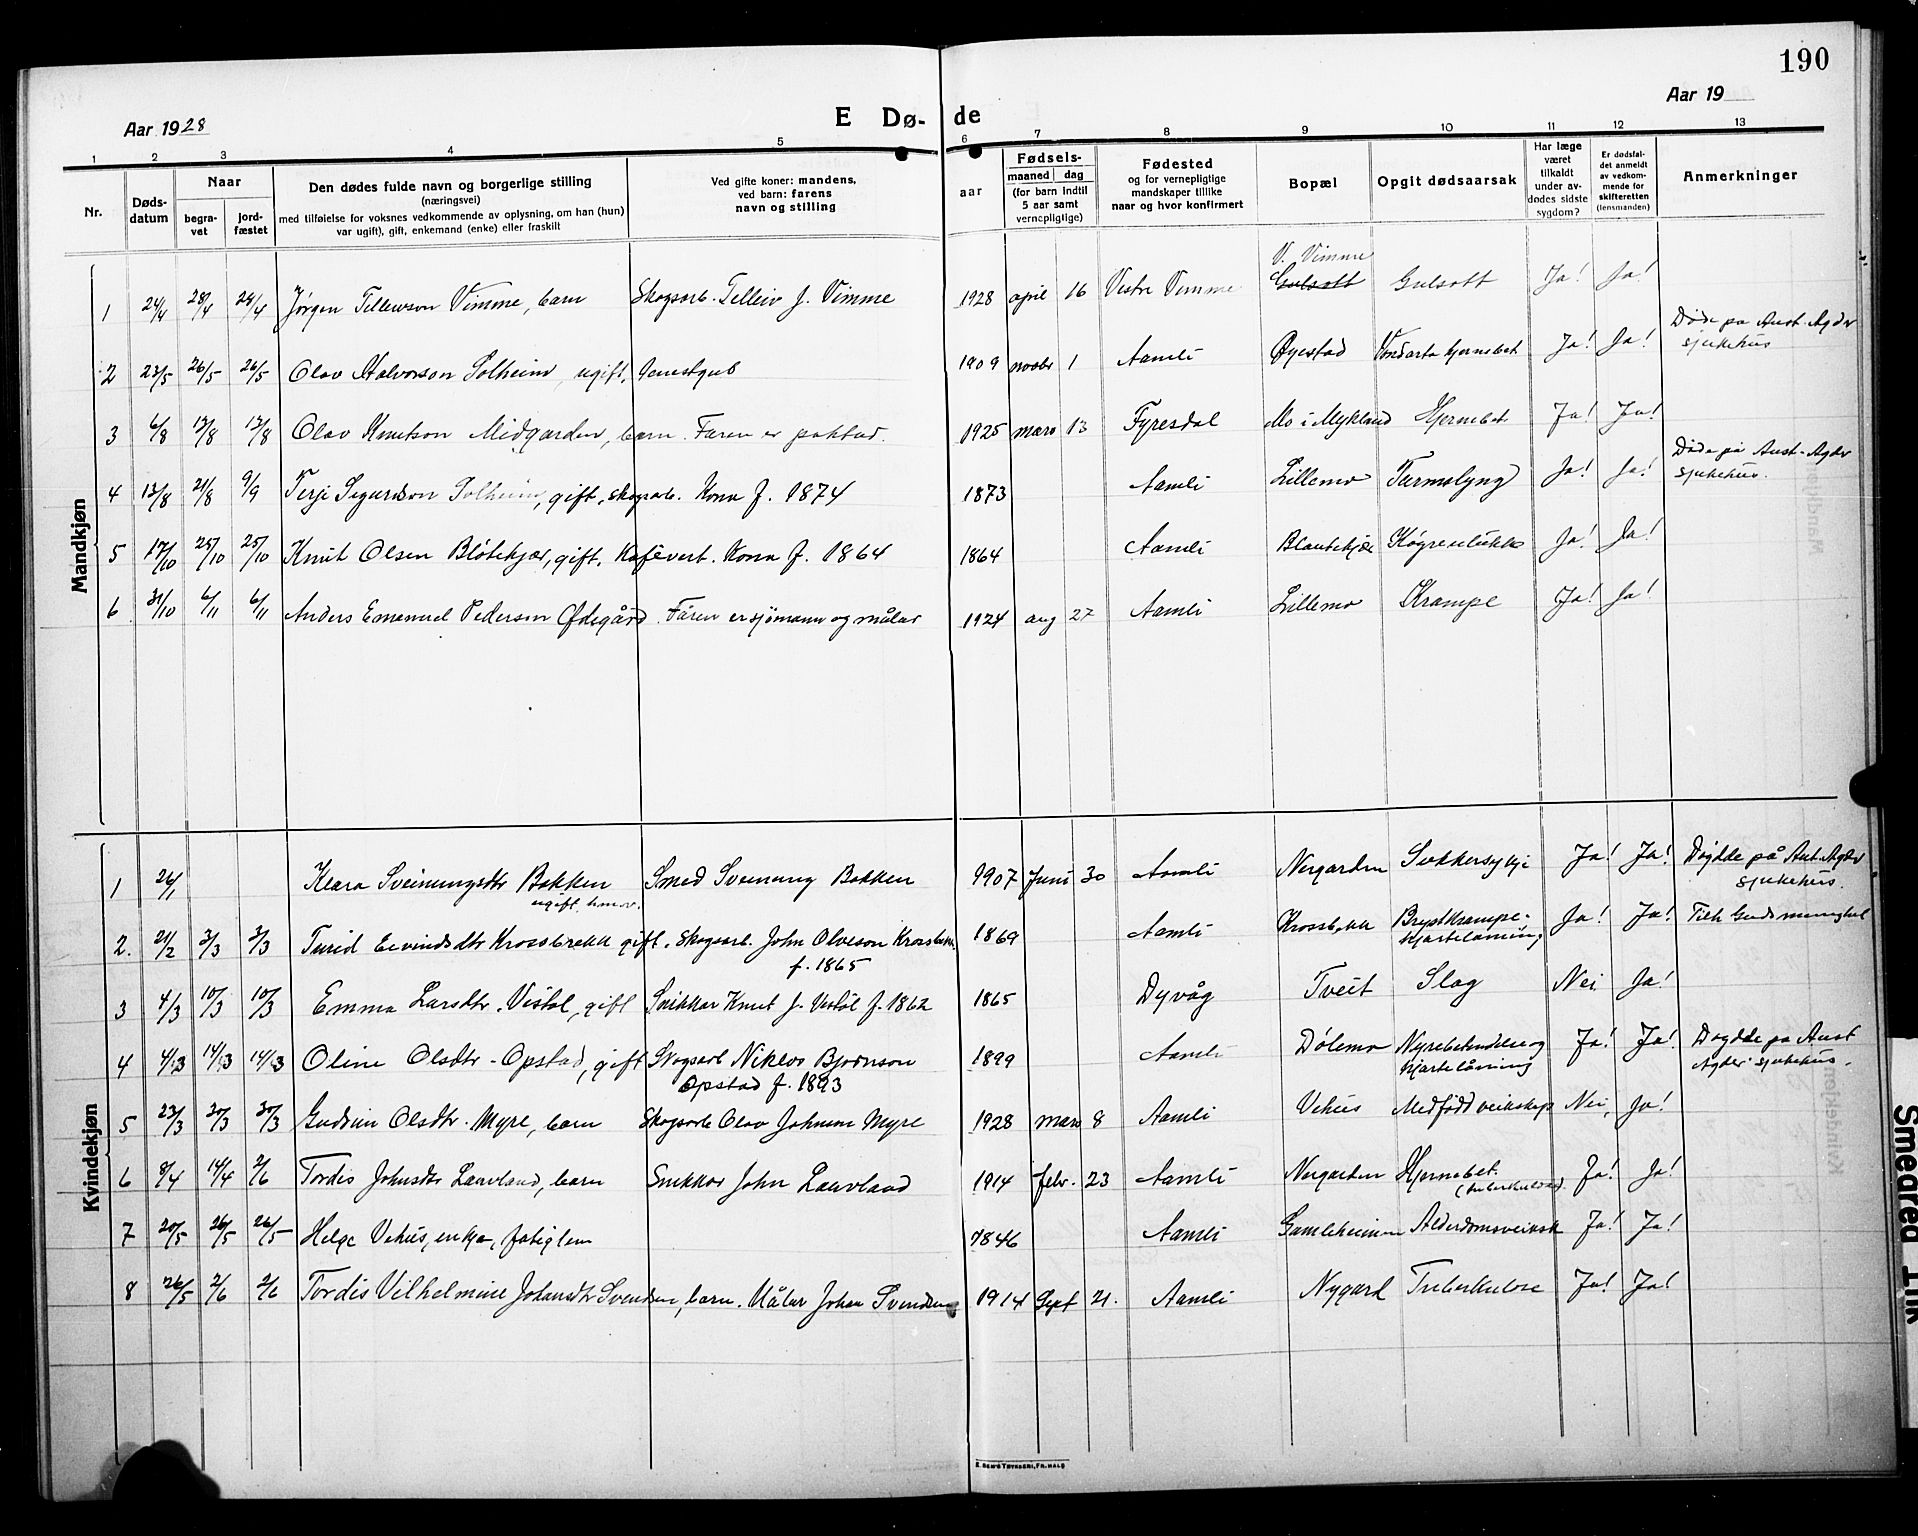 190
Aar 1928
E Dø- de
Aar 19
1 2 3 4 5 6 7 8 9 10 11 12 13
Nr.
Døds-
datum
Naar
begra-
vet
jord-
fæstet
Den dødes fulde navn og borgerlige stilling
(næringsvei)
med tilføielse for voksnes vedkommende av oplysning, om han (hun)
var ugift), gift, enkemand (enke) eller fraskilt
Ved gifte koner: mandens,
ved barn: farens
navn og stilling
aar
Fødsels-
maaned dag
(for barn indtil
5 aar samt
vernepligtige)
Fødested
og for vernepligtige
mandskaper tillike
naar og hvor konfirmert
Bopæl
Opgit dødsaarsak
Har læge
været
tilkaldt
under av-
dødes sidste
sygdom?
Er dødsfal-
det anmeldt
av vedkom-
mende for
skifteretten
(lensmanden)
Anmerkninger
Mandkjøn
V. Vimme
1 24/4 28/4 28/4 Jørgen Tellewson Vimme, barn Skogsarb. Telleiv J. Vimme 1928 april 16 Vestre Vimme Gulsott Gulsott Ja! Ja!
Døde på Aust-Agder
sjukehus
2 23/5 26/5 26/5 Olav Halvorson Solheim, ugift, 1909 novbr 1 Aamli Øyestad hjernebet Ja! Ja!
3 6/8 12/8 12/8 Olav Knutson Midgarden, barn. Faren er 1925 mars 13 Fyresdal Mo i Mykland Hjernebet Ja! Ja!
Døde på Aust-Agder
sjukehus.
4 12/8 21/8 9/9 Terje Sigurdson Solheim, gift, skogsarb. Kona f. 1874 1873 Aamli Lillemo Tarmslyng Ja! Ja!
5 17/10 25/10 25/10 Knut Olsen Bløtekjær, gift, Kafévert. Kona f. 1864 1864 Aamli Ja! Ja!
6 31/10 6/11 6/11 Anders Emanuel Pederson Ødegård. Faren er sjømann og målar 1924 aug 27 Aamli Lillemo Krampe Ja! Ja!
Kvindekjøn
1 26/1 Klara Sveinungsdtr Bakken Smed Sveinung Bakken 1907 Juni 30 Aamli Nergarden Sukkersykje Ja! Ja! Døydde på Aust-Agder
ugift sjukehus.
2. 21/2 3/3 3/3 Turid Eivindsdtr Krossbrekk gift. Skogsarb. John Olveson Krossbekk 1869 Aamli Krossbekk Brystkrampe- Ja! Ja!
f. 1865 hjartelåming
3 4/3 10/3 10/3 Emma Larsdtr. Vistøl, gift Snikkar Knut J. Vestøl f. 1862 1865 Dyvåg Tveit Slag Nei Ja!
4 4/13 14/13 14/13 Oline Olsdtr. Opstad, gift Skogsarb Niklos Bjørnson 1899 Aamli Dølemo Nyrebetendelse og Ja! Ja! Døydde på Aust
Opstad f. 1893 hjartelåming Agder sjukehus.
5 23/3 30/3 30/3 Gudrun Olsdtr. Myre, barn Skogsarb Olav Johnson Myre 1928 mars 8 Aamli Vehus Medfødd veikskap Nei, Ja!
6 8/4 14/4 2/6 Tordis Johnsdtr Lauvland, barn Snikkar John Lauvland 1914 febr. 23 Aamli Nergarden Hjernebet. Ja! Ja!
(tuberkuløs).
7 20/5 26/5 26/5 Helge Vehus, enkja, fatiglem 1846 Aamli Gamleheimen Alderdomsveiksk Ja! Ja!
8 26/5 2/6 2/6 Tordis Vilhelmine Johansdtr Svendsen, barn. Målar Johan Svendsen 1914 Sept 21. Aamli Nygard Tuberkulose Ja! Ja!
Smeared Ink